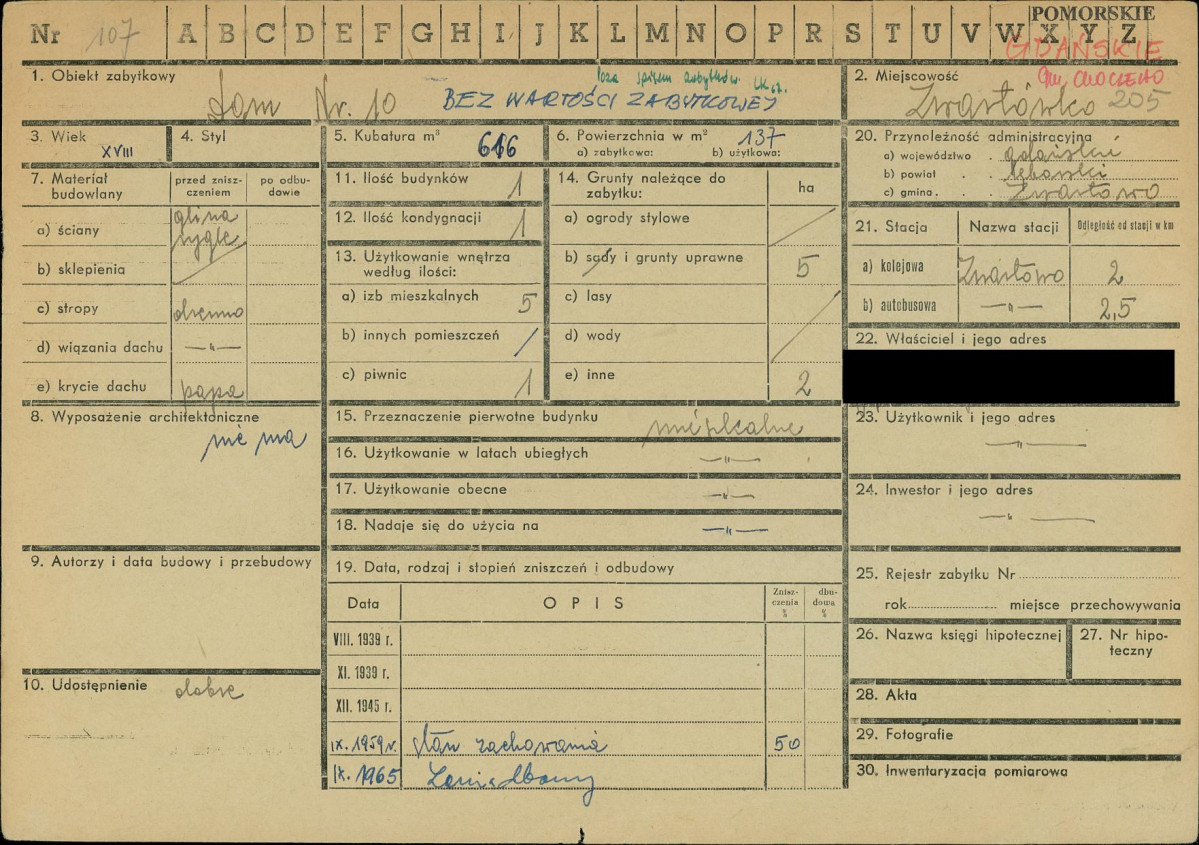 Nr 107 A B C D E F G H I J K L M N O P R S T U V W X Y Z
POMORSKIE
GDAŃSKIE
gm. CHOCZEWO
1. Obiekt zabytkowy
Dom Nr. 10
Poza spisem zabytków.
BEZ WARTOŚCI ZABYTKOWEJ
2. Miejscowość
Zwartówko 205
3. Wiek
XVIII
4. Styl
5. Kubatura m³
616
6. Powierzchnia w m²
137
a) zabytkowa: b) użytkowa:
7. Materiał budowlany
przed znisz-
czeniem
po odbu-
dowie
a) ściany
glina
rygle
b) sklepienia
c) stropy
drewno
d) wiązania dachu —„—
e) krycie dachu papa
8. Wyposażenie architektoniczne
nie ma
9. Autorzy i data budowy i przebudowy
10. Udostępnienie dobre
11. Ilość budynków 1
12. Ilość kondygnacji 1
13. Użytkowanie wnętrza
według ilości:
a) izb mieszkalnych 5
b) innych pomieszczeń /
c) piwnic 1
14. Grunty należące do
zabytku:
ha
a) ogrody stylowe
b) sady i grunty uprawne 5
c) lasy
d) wody
e) inne 2
15. Przeznaczenie pierwotne budynku
mieszkalne
16. Użytkowanie w latach ubiegłych —„—
17. Użytkowanie obecne —„—
18. Nadaje się do użycia na —„—
19. Data, rodzaj i stopień zniszczeń i odbudowy
Data
OPIS
Znisz-
czenia
%
dbu-
dowa
%
VIII. 1939 r.
XI. 1939 r.
XII. 1945 r.
IX. 1959 r. stan zachowania 50
IX. 1965 Zaniedbany
20. Przynależność administracyjna
a) województwo . gdański
b) powiat . . lęborski
c) gmina . . . Zwartowo
21. Stacja
Nazwa stacji
Odległość od stacji w km
a) kolejowa Zwartowo 2
b) autobusowa —„— 2,5
22. Właściciel i jego adres
23. Użytkownik i jego adres
—„—
24. Inwestor i jego adres
—„—
25. Rejestr zabytku Nr
rok miejsce przechowywania
26. Nazwa księgi hipotecznej
27. Nr hipo-
teczny
28. Akta
29. Fotografie
30. Inwentaryzacja pomiarowa